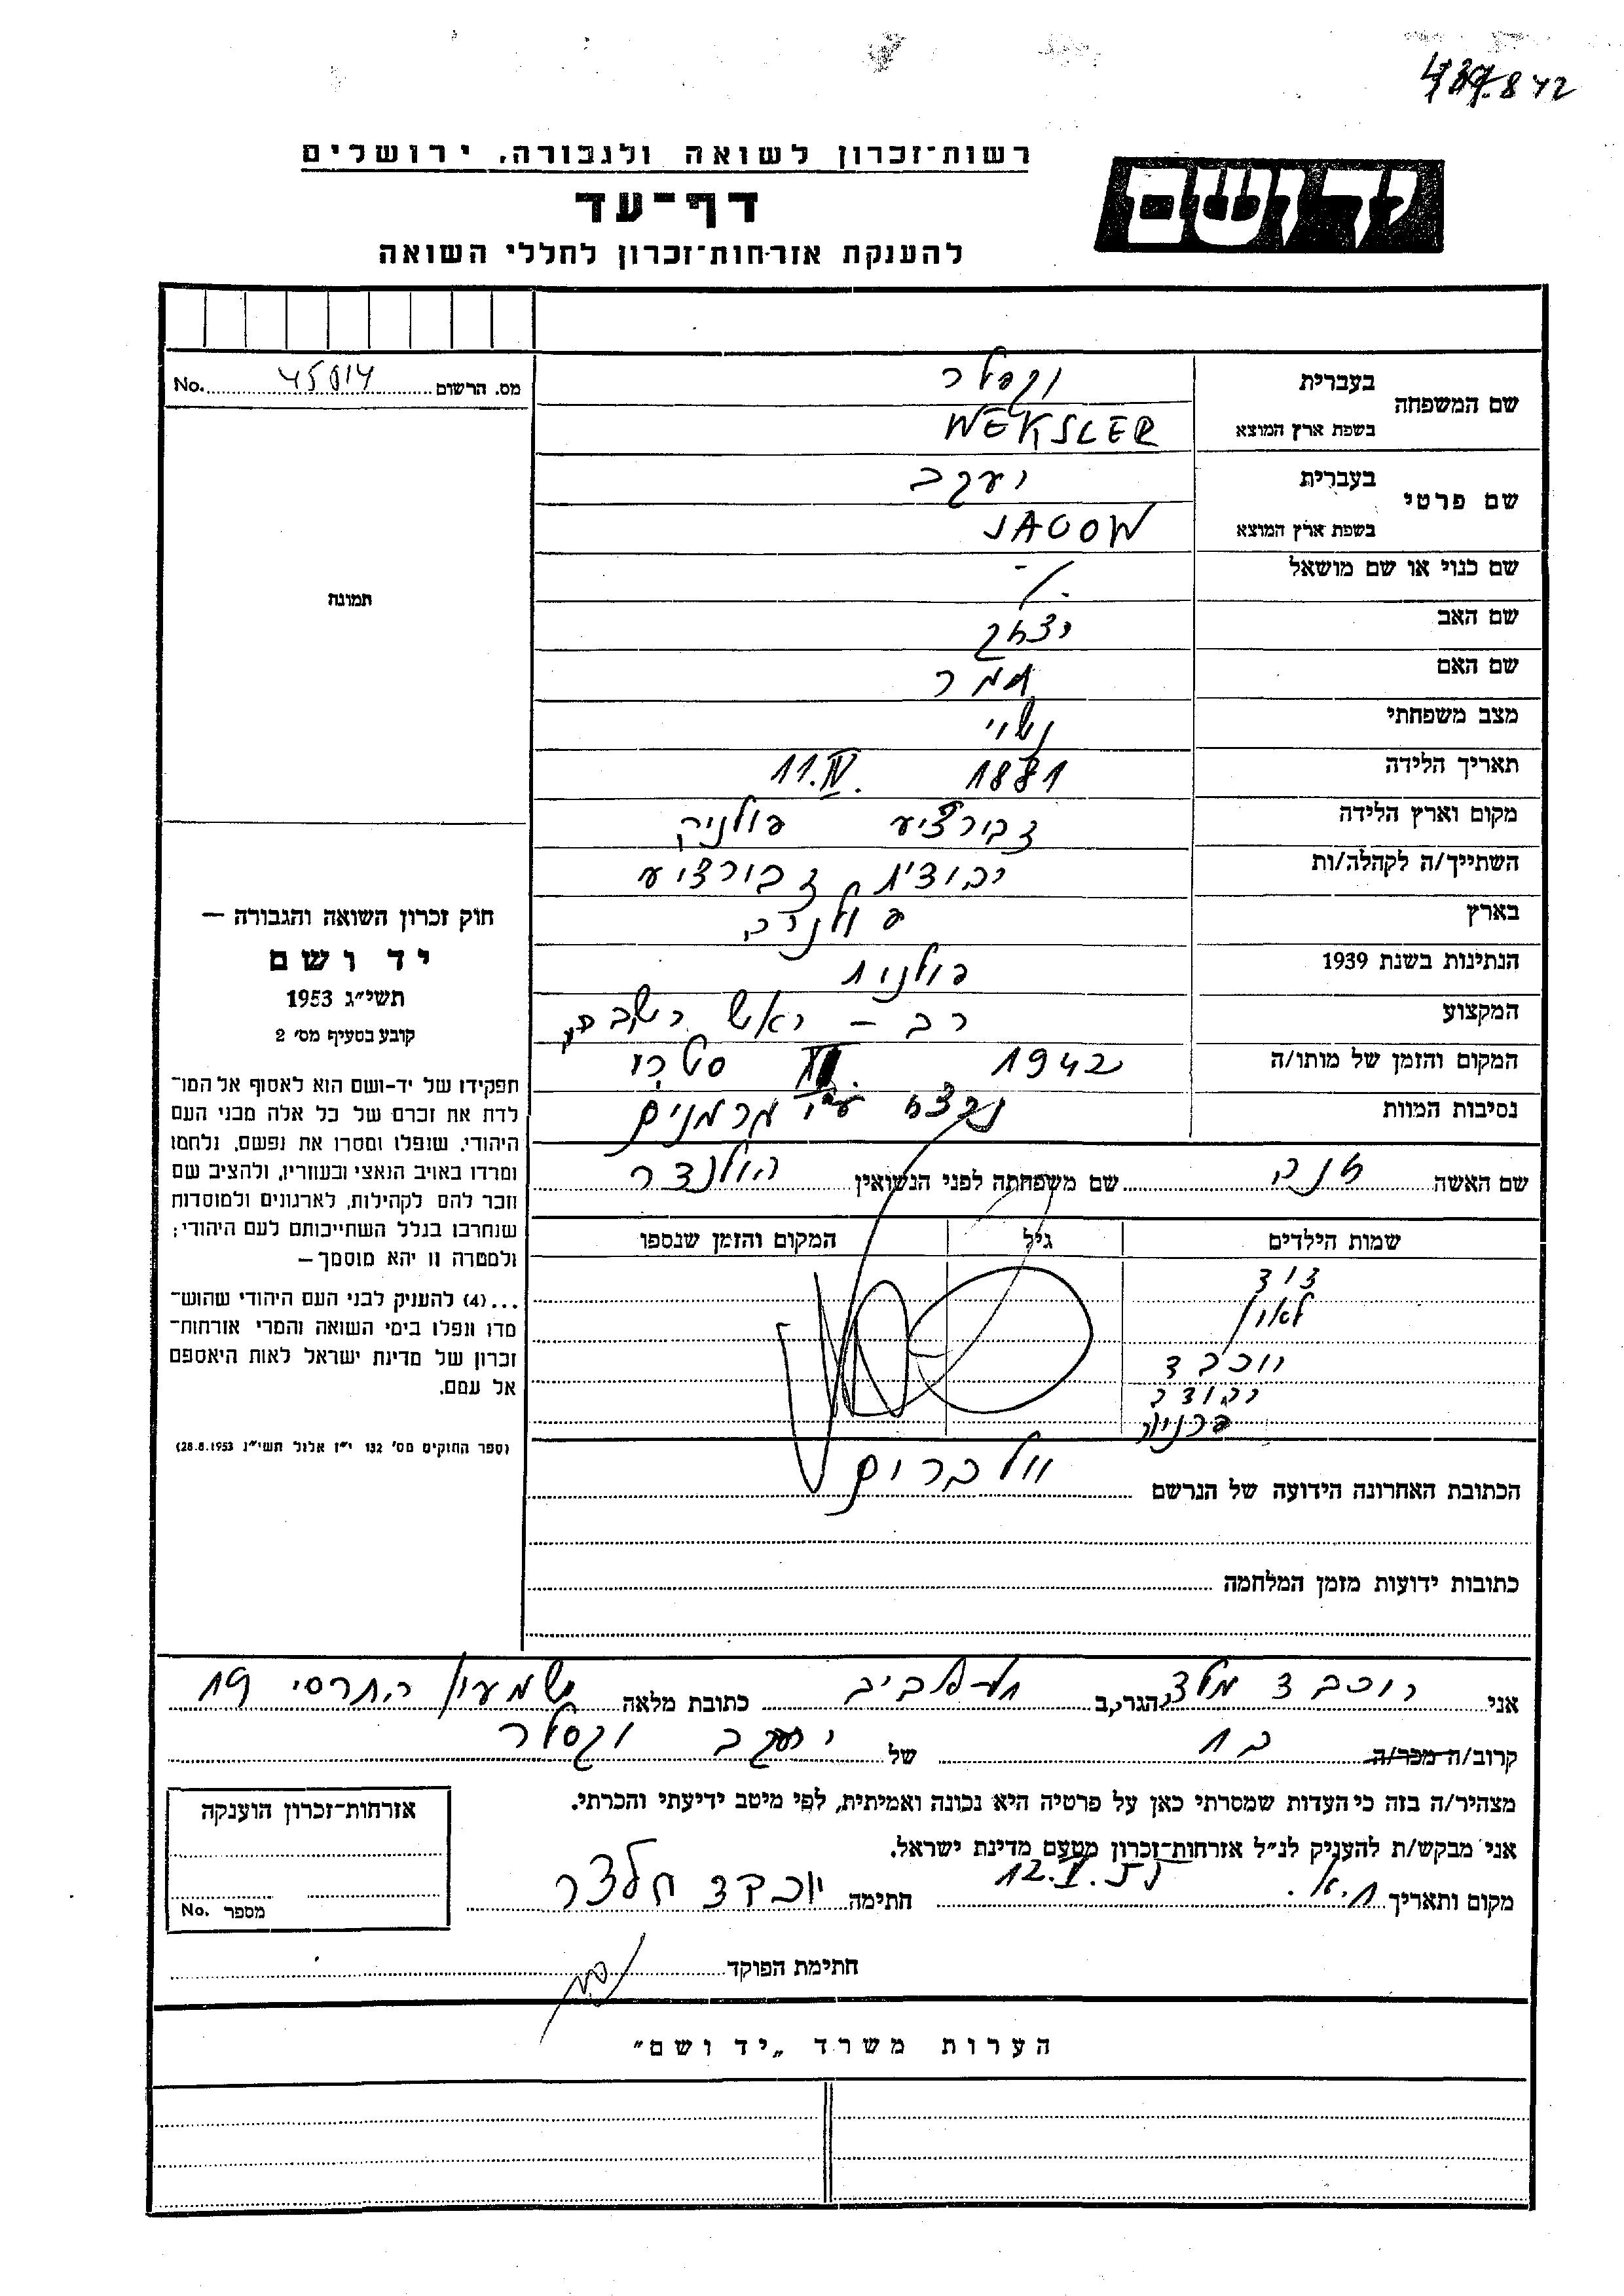 רשות־זכרון לשואה ולגבורה, ירושלים
יד ושם
דף־עד
להענקת אזרחות־זכרון לחללי השואה
מס. הרשום 45014 No.
שם המשפחה בעברית וקסלר
בשפת ארץ המוצא WEKSLER
שם פרטי בעברית יעקב
בשפת ארץ המוצא
שם כנוי או שם מושאל -/.
שם האב יצחק
שם האם תמר
מצב משפחתי נשוי
תאריך הלידה 1881 11.IV.
מקום וארץ הלידה
השתייך/ה לקהלה/ות
בארץ
הנתינות בשנת 1939 פולנית
המקצוע רב - ראש
המקום והזמן של מותו/ה 1942
נסיבות המוות נרצח ע"י גרמנים
שם האשה שם משפחתה לפני הנשואין הולנדר
שמות הילדים גיל המקום והזמן שנספו
דוד
לאון
יוכבד
הכתובת האחרונה הידועה של הנרשם וולברום
כתובות ידועות מזמן המלחמה
תמונה
חוק זכרון השואה והגבורה —
יד ושם
תשי״ג 1953
קובע בסעיף מס׳ 2
תפקידו של יד-ושם הוא לאסוף אל המו־
לדת את זכרם של כל אלה מבני העם
היהודי, שנפלו ומסרו את נפשם, נלחמו
ומרדו באויב הנאצי ובעוזריו, ולהציב שם
וזכר להם לקהילות, לארגונים ולמוסדות
שנחרבו בגלל השתייכותם לעם היהודי;
ולמטרה זו יהא מוסמך —
...(4) להעניק לבני העם היהודי שהוש־
מדו ונפלו בימי השואה והמרי אזרחות־
זכרון של מדינת ישראל לאות היאספם
אל עמם.
(ספר החוקים מס׳ 132 י״ז אלול תשי״ג 28.8.1953)
אני יוכבד הגר/ב תל אביב כתובת מלאה שמעון התרסי 19
קרוב/ה מכר/ה בת של יעקב וקסלר
מצהיר/ה בזה כי העדות שמסרתי כאן על פרטיה היא נכונה ואמיתית, לפי מיטב ידיעתי והכרתי.
אני מבקש/ת להעניק לנ״ל אזרחות־זכרון מטעם מדינת ישראל.
מקום ותאריך ת.א. 12.V.55 חתימה יוכבד
אזרחות־זכרון הוענקה
מספר No.
חתימת הפוקד
הערות משרד „יד ושם״